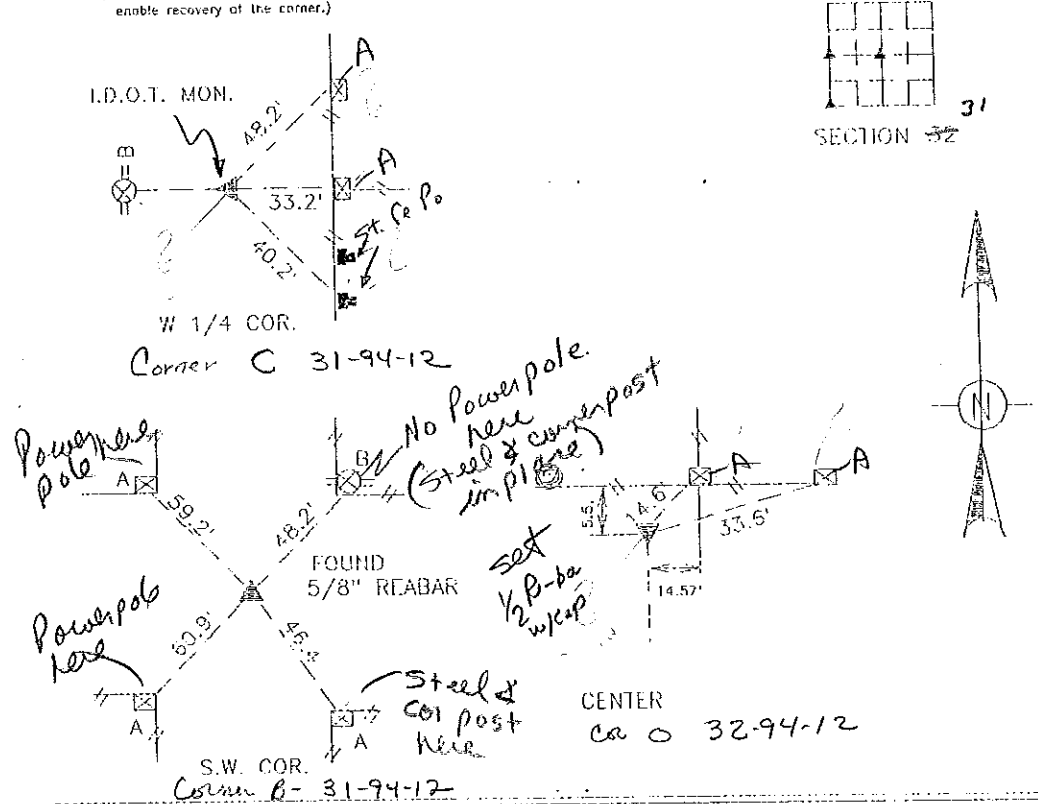 enable recovery of the corner.)
I.D.O.T. MON.
A
48.2'
B
33.2'
A
40.2'
St. Ce Po
W 1/4 COR.
Corner C 31-94-12
31
SECTION 32
N
Powerpole here
A
59.2'
B
48.2'
No Powerpole
here
(Steel & cornerpost
in place)
FOUND
5/8" REABAR
Powerpole
here
60.9'
A
46.
A
Steel &
cor post
here
S.W. COR.
Corner B- 31-94-12
A
A
5.5'
14.6'
33.6'
14.57'
set
1/2 R-bar
w/cap
CENTER
Cor O 32-94-12